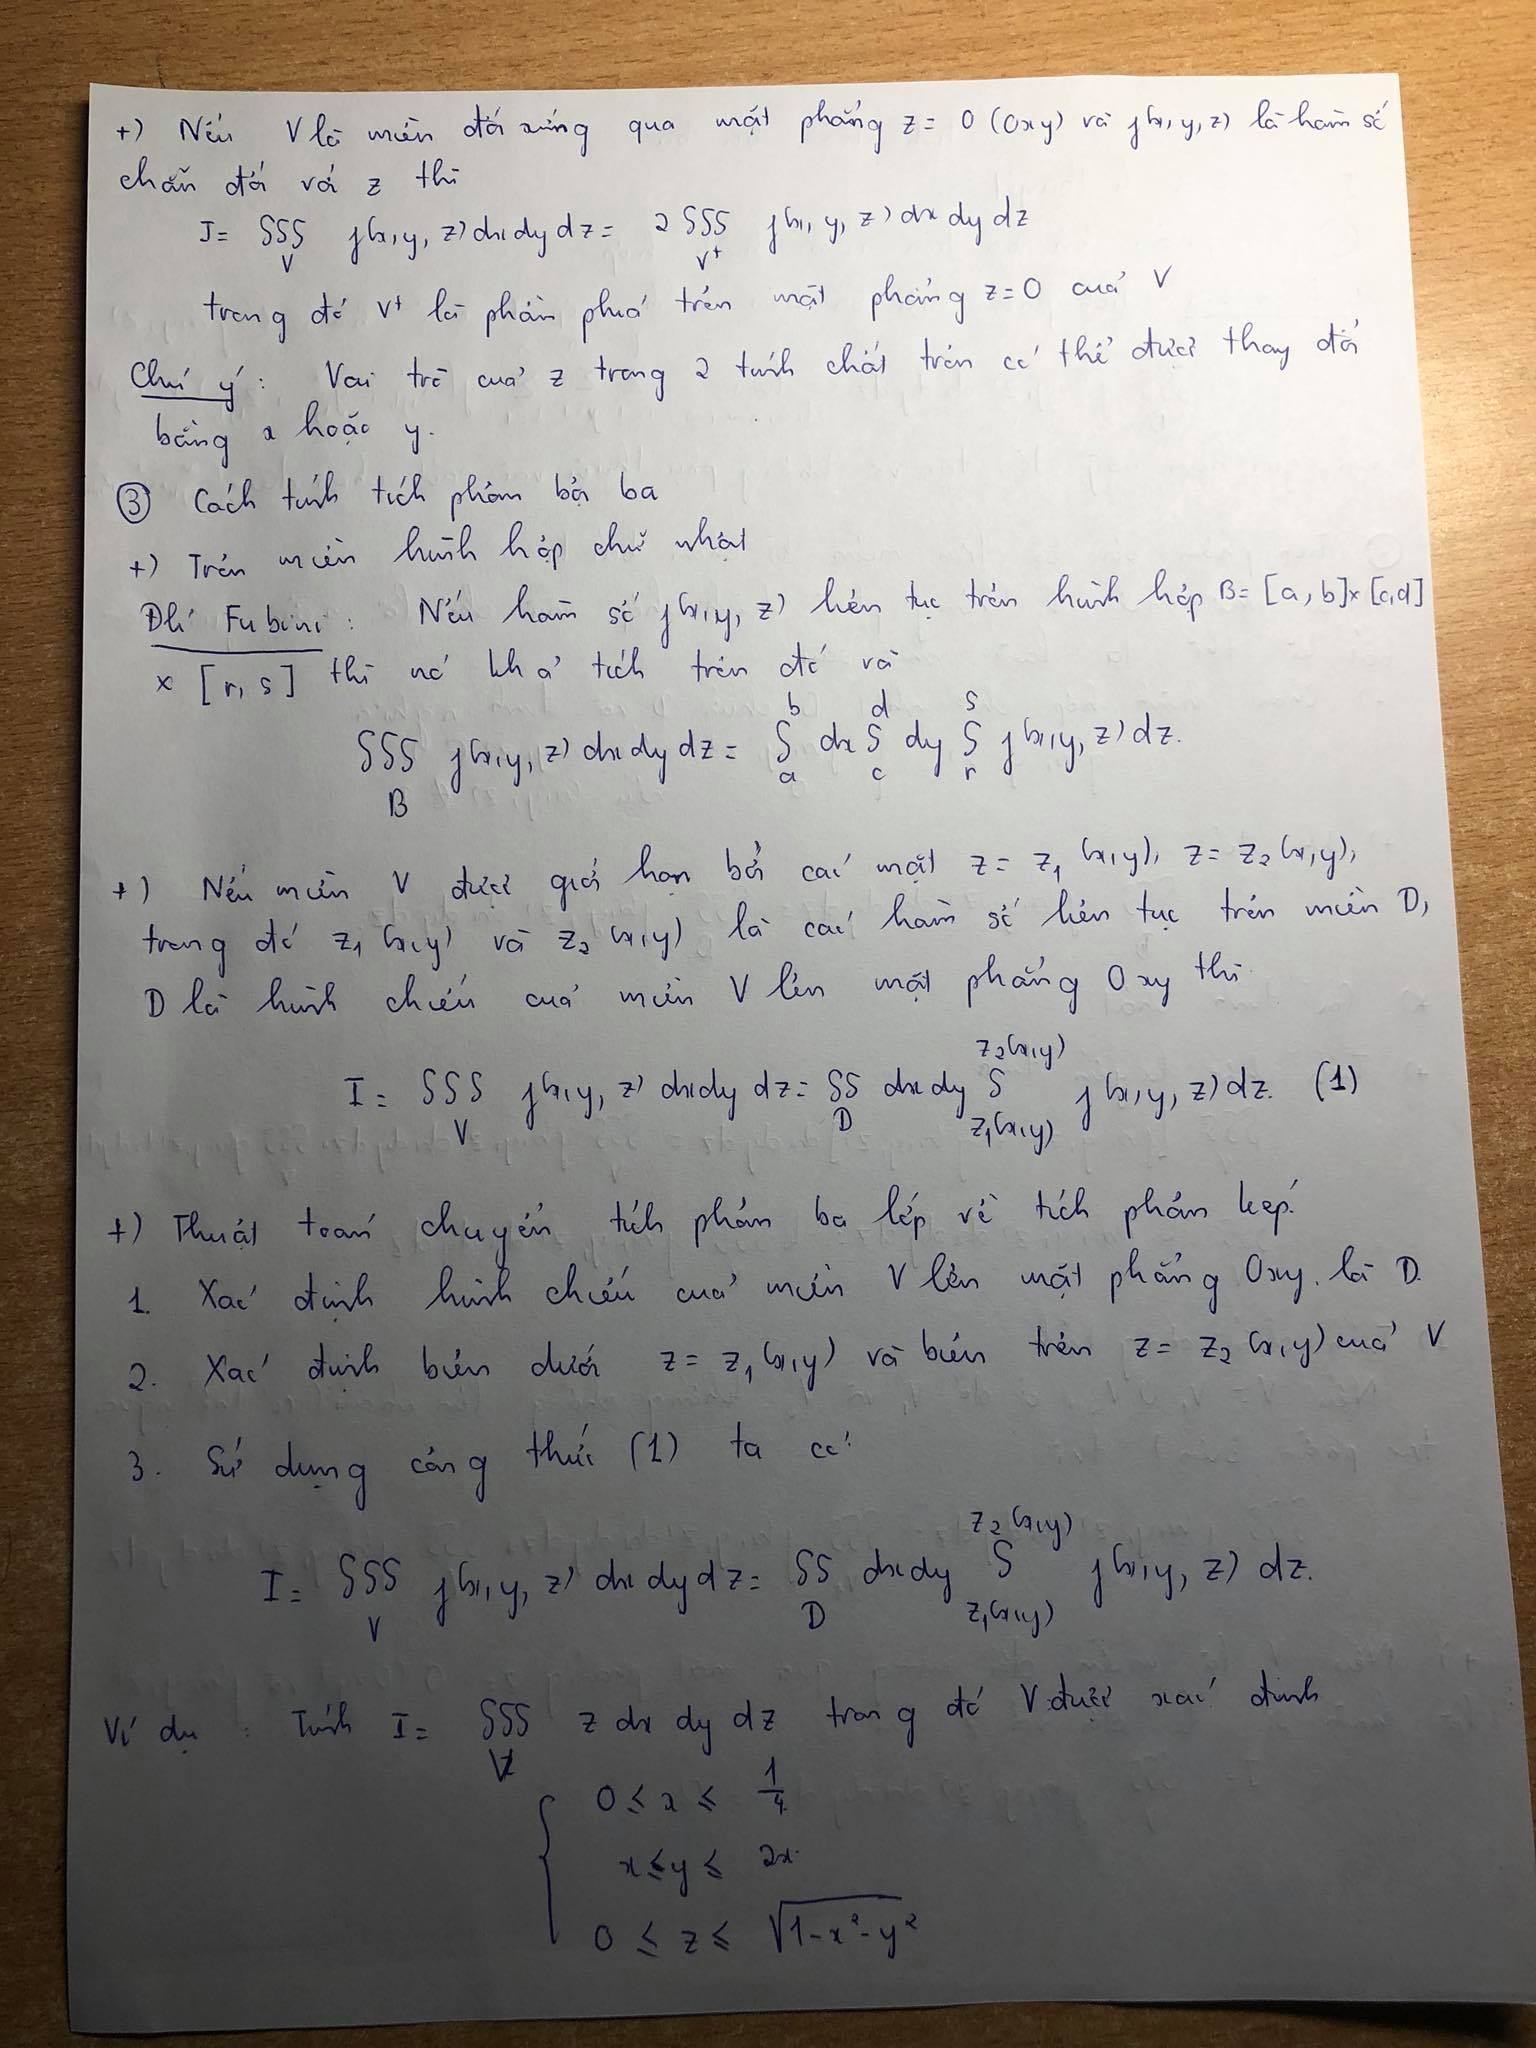 +) Nếu V là miền đối xứng qua mặt phẳng z = 0 (Oxy) và f(x, y, z) là hàm số
chẵn đối với z thì
I = ∭_V f(x, y, z) dx dy dz = 2 ∭_{V⁺} f(x, y, z) dx dy dz
trong đó V⁺ là phần phía trên mặt phẳng z = 0 của V
Chú ý : Vai trò của z trong 2 tính chất trên có thể được thay đổi
bằng x hoặc y.
③ Cách tính tích phân bội ba
+) Trên miền hình hộp chữ nhật
Đlí Fubini : Nếu hàm số f(x, y, z) liên tục trên hình hộp B = [a, b] × [c, d]
× [r, s] thì nó khả tích trên đó và
∭_B f(x, y, z) dx dy dz = ∫_a^b dx ∫_c^d dy ∫_r^s f(x, y, z) dz.
+) Nếu miền V được giới hạn bởi các mặt z = z₁(x, y), z = z₂(x, y),
trong đó z₁(x, y) và z₂(x, y) là các hàm số liên tục trên miền D,
D là hình chiếu của miền V lên mặt phẳng Oxy thì
I = ∭_V f(x, y, z) dx dy dz = ∬_D dx dy ∫_{z₁(x,y)}^{z₂(x,y)} f(x, y, z) dz. (1)
+) Thuật toán chuyển tích phân ba lớp về tích phân kép.
1. Xác định hình chiếu của miền V lên mặt phẳng Oxy. là D.
2. Xác định biên dưới z = z₁(x, y) và biên trên z = z₂(x, y) của V
3. Sử dụng công thức (1) ta có:
I = ∭_V f(x, y, z) dx dy dz = ∬_D dx dy ∫_{z₁(x,y)}^{z₂(x,y)} f(x, y, z) dz.
Ví dụ : Tính I = ∭_V z dx dy dz trong đó V được xác định
{ 0 ≤ x ≤ 1/4
x ≤ y ≤ 2x
0 ≤ z ≤ √(1-x²-y²)